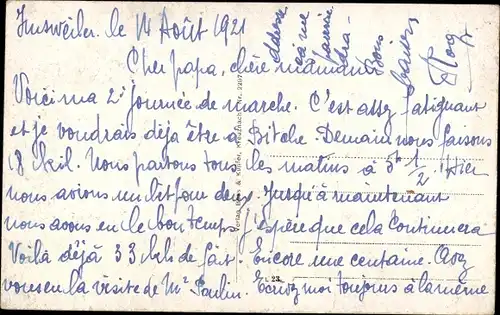 Insweiler. le 14 Août 1921
Cher papa, chère maman
Voici ma 2e journée de marche. C'est assez fatiguant
et je voudrais déjà être à Bitche. Demain nous faisons
18 kil. Nous partons tous les matins à 5h 1/2. Hier
nous avions un lit pour deux. Jusqu'à maintenant
nous avons eu le bon temps j'espère que cela continuera
Voilà déjà 33 kils de fait. Encore une centaine. Avez
vous eu la visite de Mr Paulin. Ecrivez moi toujours à la même
adresse
Bons
baisers
Rog
23